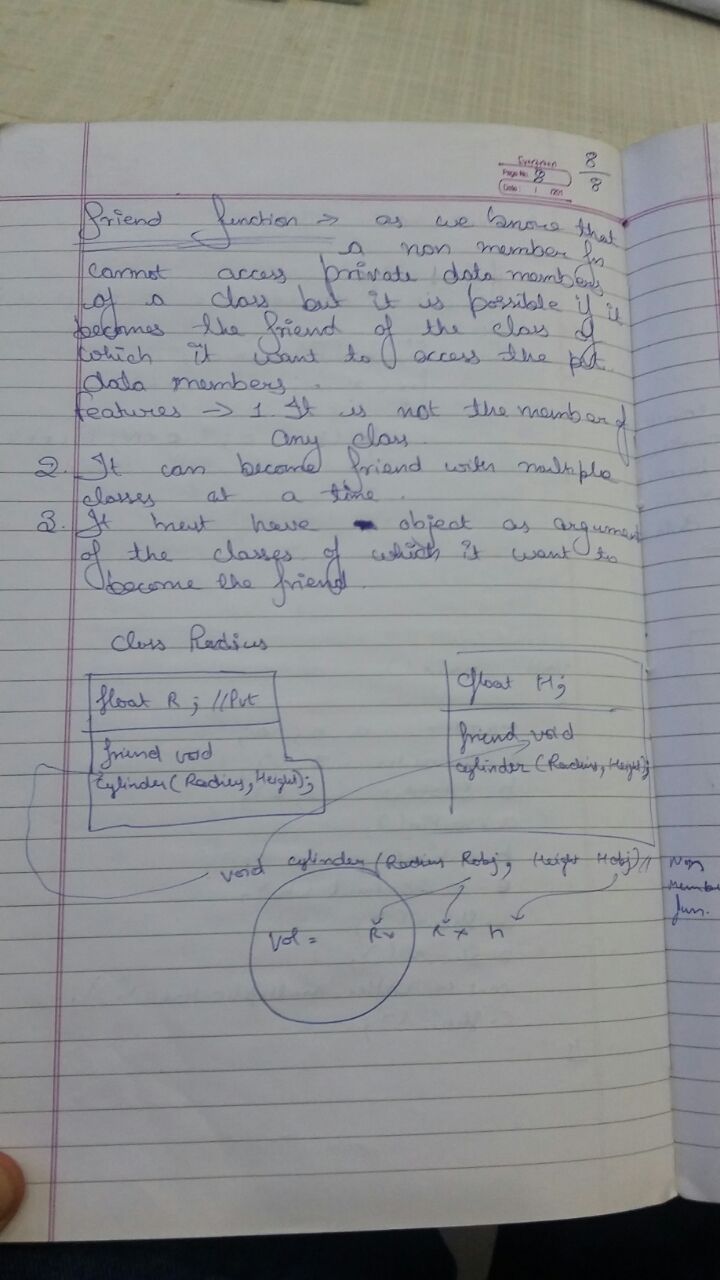 Evergreen
Page No. 8
Date: / /201
8
8
friend function -> as we know that
a non member fn
cannot access private data members
of a class but it is possible if it
becomes the friend of the class of
which it want to access the pvt
data members.
features -> 1. It is not the member of
any class.
2. It can become friend with multiple
classes at a time.
3. It must have object as argument
of the classes of which it want to
become the friend.
Class Radius
float R; //Pvt
float H;
friend void
cylinder(Radius, Height);
friend void
cylinder(Radius, Height);
void cylinder(Radius Robj, Height Hobj)//
Non
Member
fun.
Vol = R x R x h